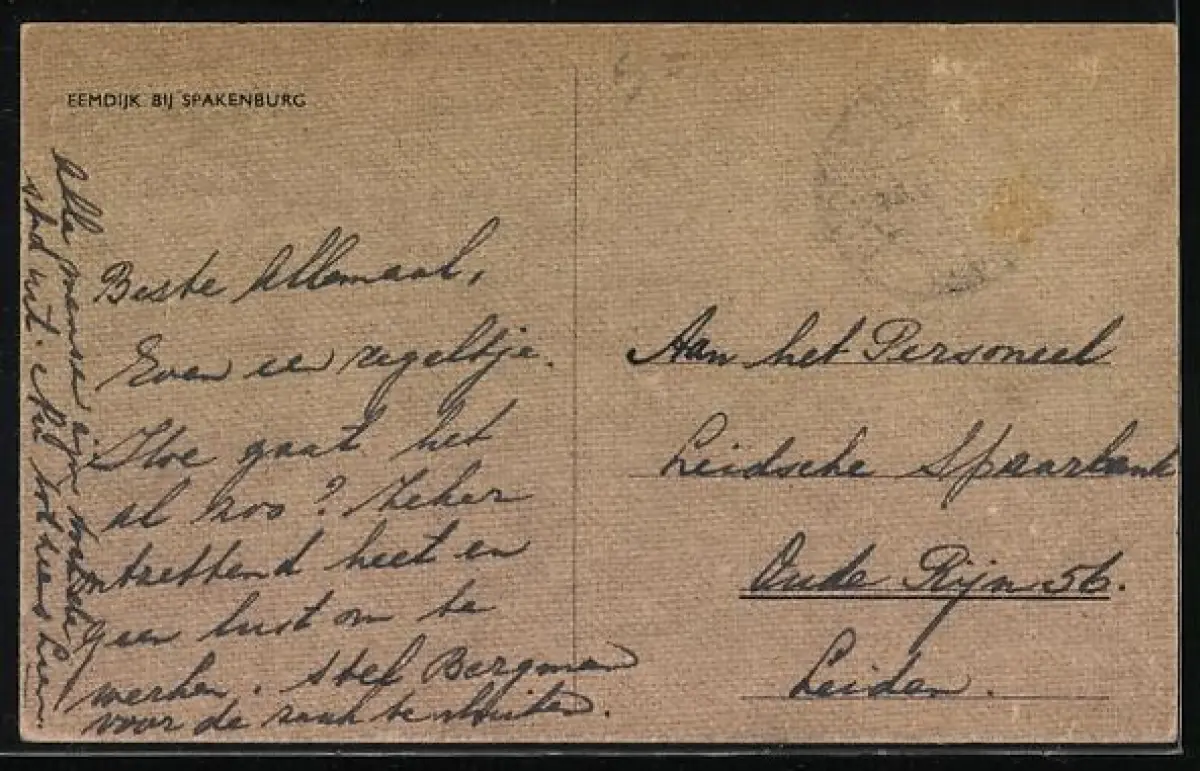 EEMDIJK BIJ SPAKENBURG
Beste Allemaal,
Even een regeltje.
Hoe gaat het
al zoo? Zeker
ontzettend heet en
geen lust om te
werken. Stel Bergman
voor de zaak te sluiten.
Alle menschen zijn toch de
stad uit. Nu tot ziens Lien
Aan het Personeel
Leidsche Spaarbank
Oude Rijn 56.
Leiden.